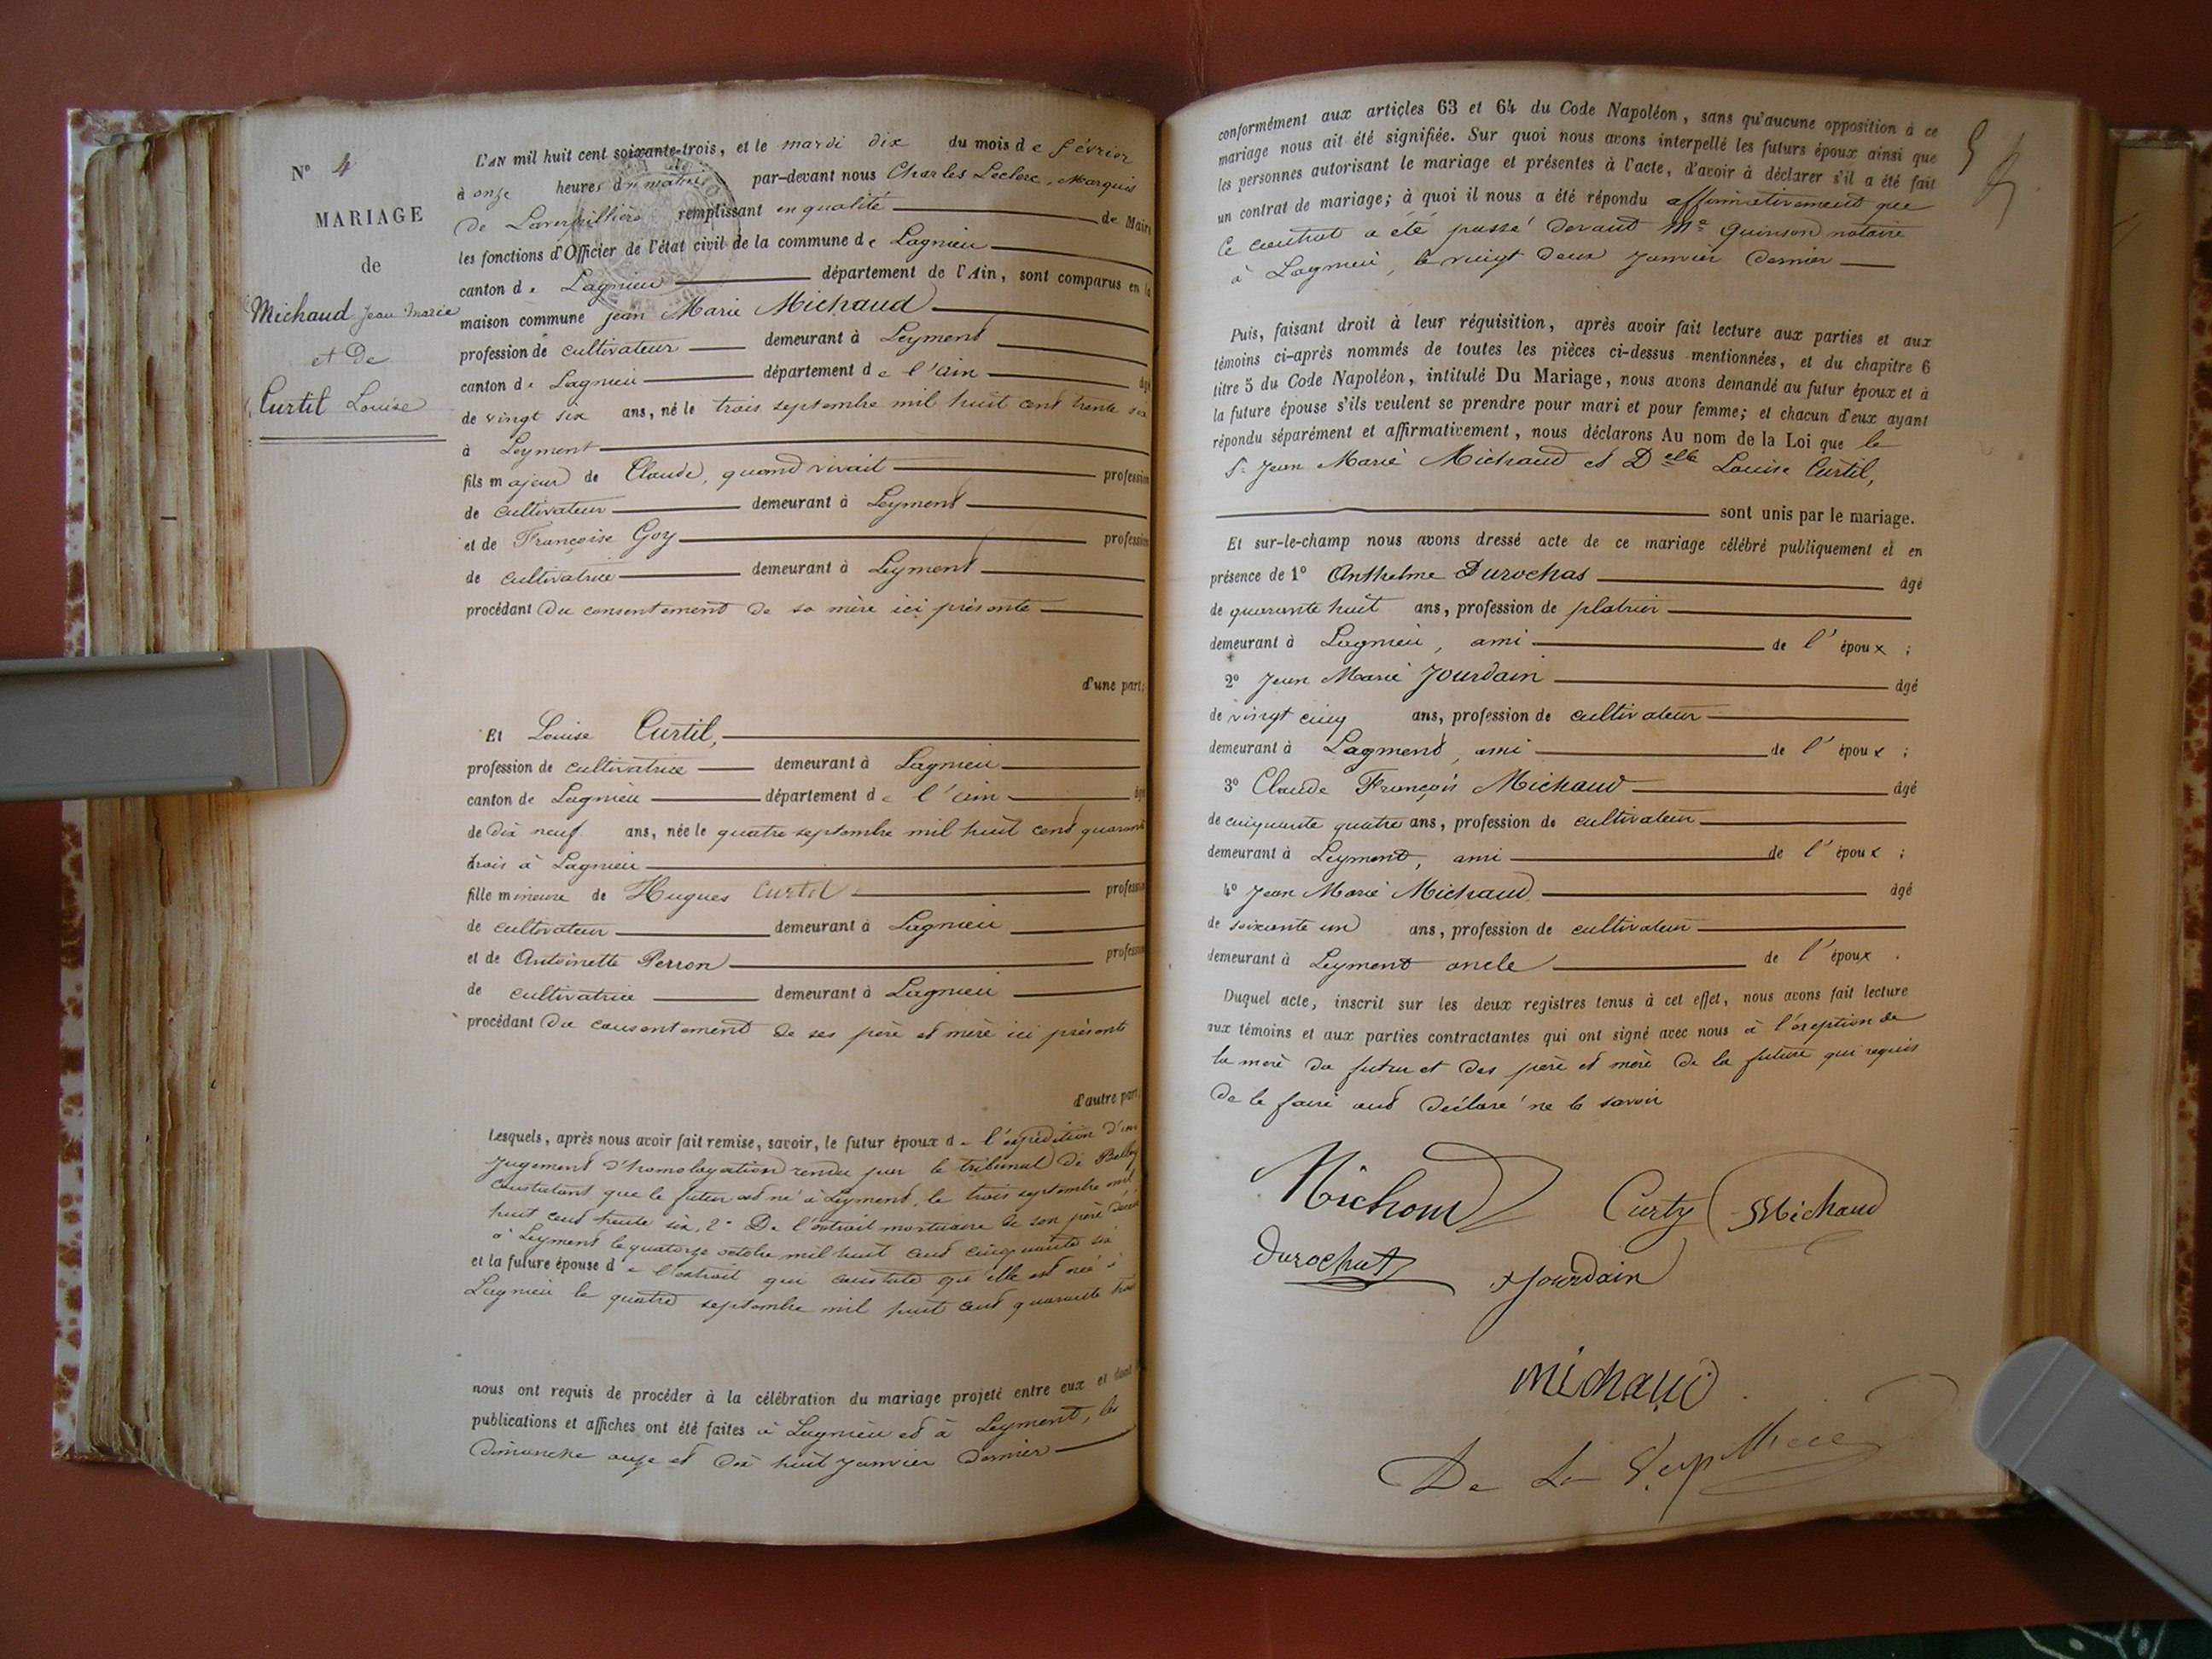 N° 4
MARIAGE
de
Michaud Jean Marie
et de
Curtil Louise
L'AN mil huit cent soixante-trois, et le mardi dix du mois de février
à onze heures du matin par-devant nous Charles Leclerc, Marquis
de Laverpillière remplissant en qualité de Maire
les fonctions d'Officier de l'état civil de la commune de Lagnieu
canton de Lagnieu département de l'Ain, sont comparus en la
maison commune jean Marie Michaud
profession de cultivateur demeurant à Leyment
canton de Lagnieu département de l'ain âgé
de vingt six ans, né le trois septembre mil huit cent trente six
à Leyment
fils majeur de Claude, quand vivait profession
de cultivateur demeurant à Leyment
et de Françoise Goy profession
de cultivatrice demeurant à Leyment
procédant du consentement de sa mère ici présente
d'une part;
Et Louise Curtil,
profession de cultivatrice demeurant à Lagnieu
canton de Lagnieu département de l'ain âgé
de dix neuf ans, née le quatre septembre mil huit cent quarante
trois à Lagnieu
fille mineure de Hugues Curtil profession
de cultivateur demeurant à Lagnieu
et de Antoinette Perron profession
de cultivatrice demeurant à Lagnieu
procédant du consentement de ses père et mère ici présents
d'autre part,
Lesquels, après nous avoir fait remise, savoir, le futur époux de l'expédition d'un
jugement d'homologation rendu par le tribunal de Belley
constatant que le futur est né à Leyment, le trois septembre mil
huit cent trente six, 2° De l'extrait mortuaire de son père décédé
à Leyment le quatorze octobre mil huit cent cinquante six
et la future épouse de l'extrait qui constate qu'elle est née à
Lagnieu le quatre septembre mil huit cent quarante trois
nous ont requis de procéder à la célébration du mariage projeté entre eux et dont
publications et affiches ont été faites à Lagnieu et à Leyment, les
dimanche onze et dix huit janvier dernier
conformément aux articles 63 et 64 du Code Napoléon, sans qu'aucune opposition à ce
mariage nous ait été signifiée. Sur quoi nous avons interpellé les futurs époux ainsi que
les personnes autorisant le mariage et présentes à l'acte, d'avoir à déclarer s'il a été fait
un contrat de mariage; à quoi il nous a été répondu affirmativement que
ce contrat a été passé devant Me Quinson notaire
à Lagnieu, le vingt deux janvier dernier
Puis, faisant droit à leur réquisition, après avoir fait lecture aux parties et aux
témoins ci-après nommés de toutes les pièces ci-dessus mentionnées, et du chapitre 6
titre 5 du Code Napoléon, intitulé Du Mariage, nous avons demandé au futur époux et à
la future épouse s'ils veulent se prendre pour mari et pour femme; et chacun d'eux ayant
répondu séparément et affirmativement, nous déclarons Au nom de la Loi que le
Sr Jean Marie Michaud et Delle Louise Curtil,
sont unis par le mariage.
Et sur-le-champ nous avons dressé acte de ce mariage célébré publiquement et en
présence de 1° Anthelme Durochas âgé
de quarante huit ans, profession de platrier
demeurant à Lagnieu, ami de l'époux ;
2° Jean Marie Jourdain âgé
de vingt cinq ans, profession de cultivateur
demeurant à Lagment, ami de l'époux ;
3° Claude François Michaud âgé
de cinquante quatre ans, profession de cultivateur
demeurant à Leyment, ami de l'époux ;
4° Jean Marie Michaud âgé
de soixante un ans, profession de cultivateur
demeurant à Leyment oncle de l'époux .
Duquel acte, inscrit sur les deux registres tenus à cet effet, nous avons fait lecture
aux témoins et aux parties contractantes qui ont signé avec nous à l'exeption de
la mere du futur et des père et mère de la future qui requis
de le faire ont déclaré ne le savoir
Michoud Curty Michaud
Durochat Jourdain
michaud
De La Verpilliere